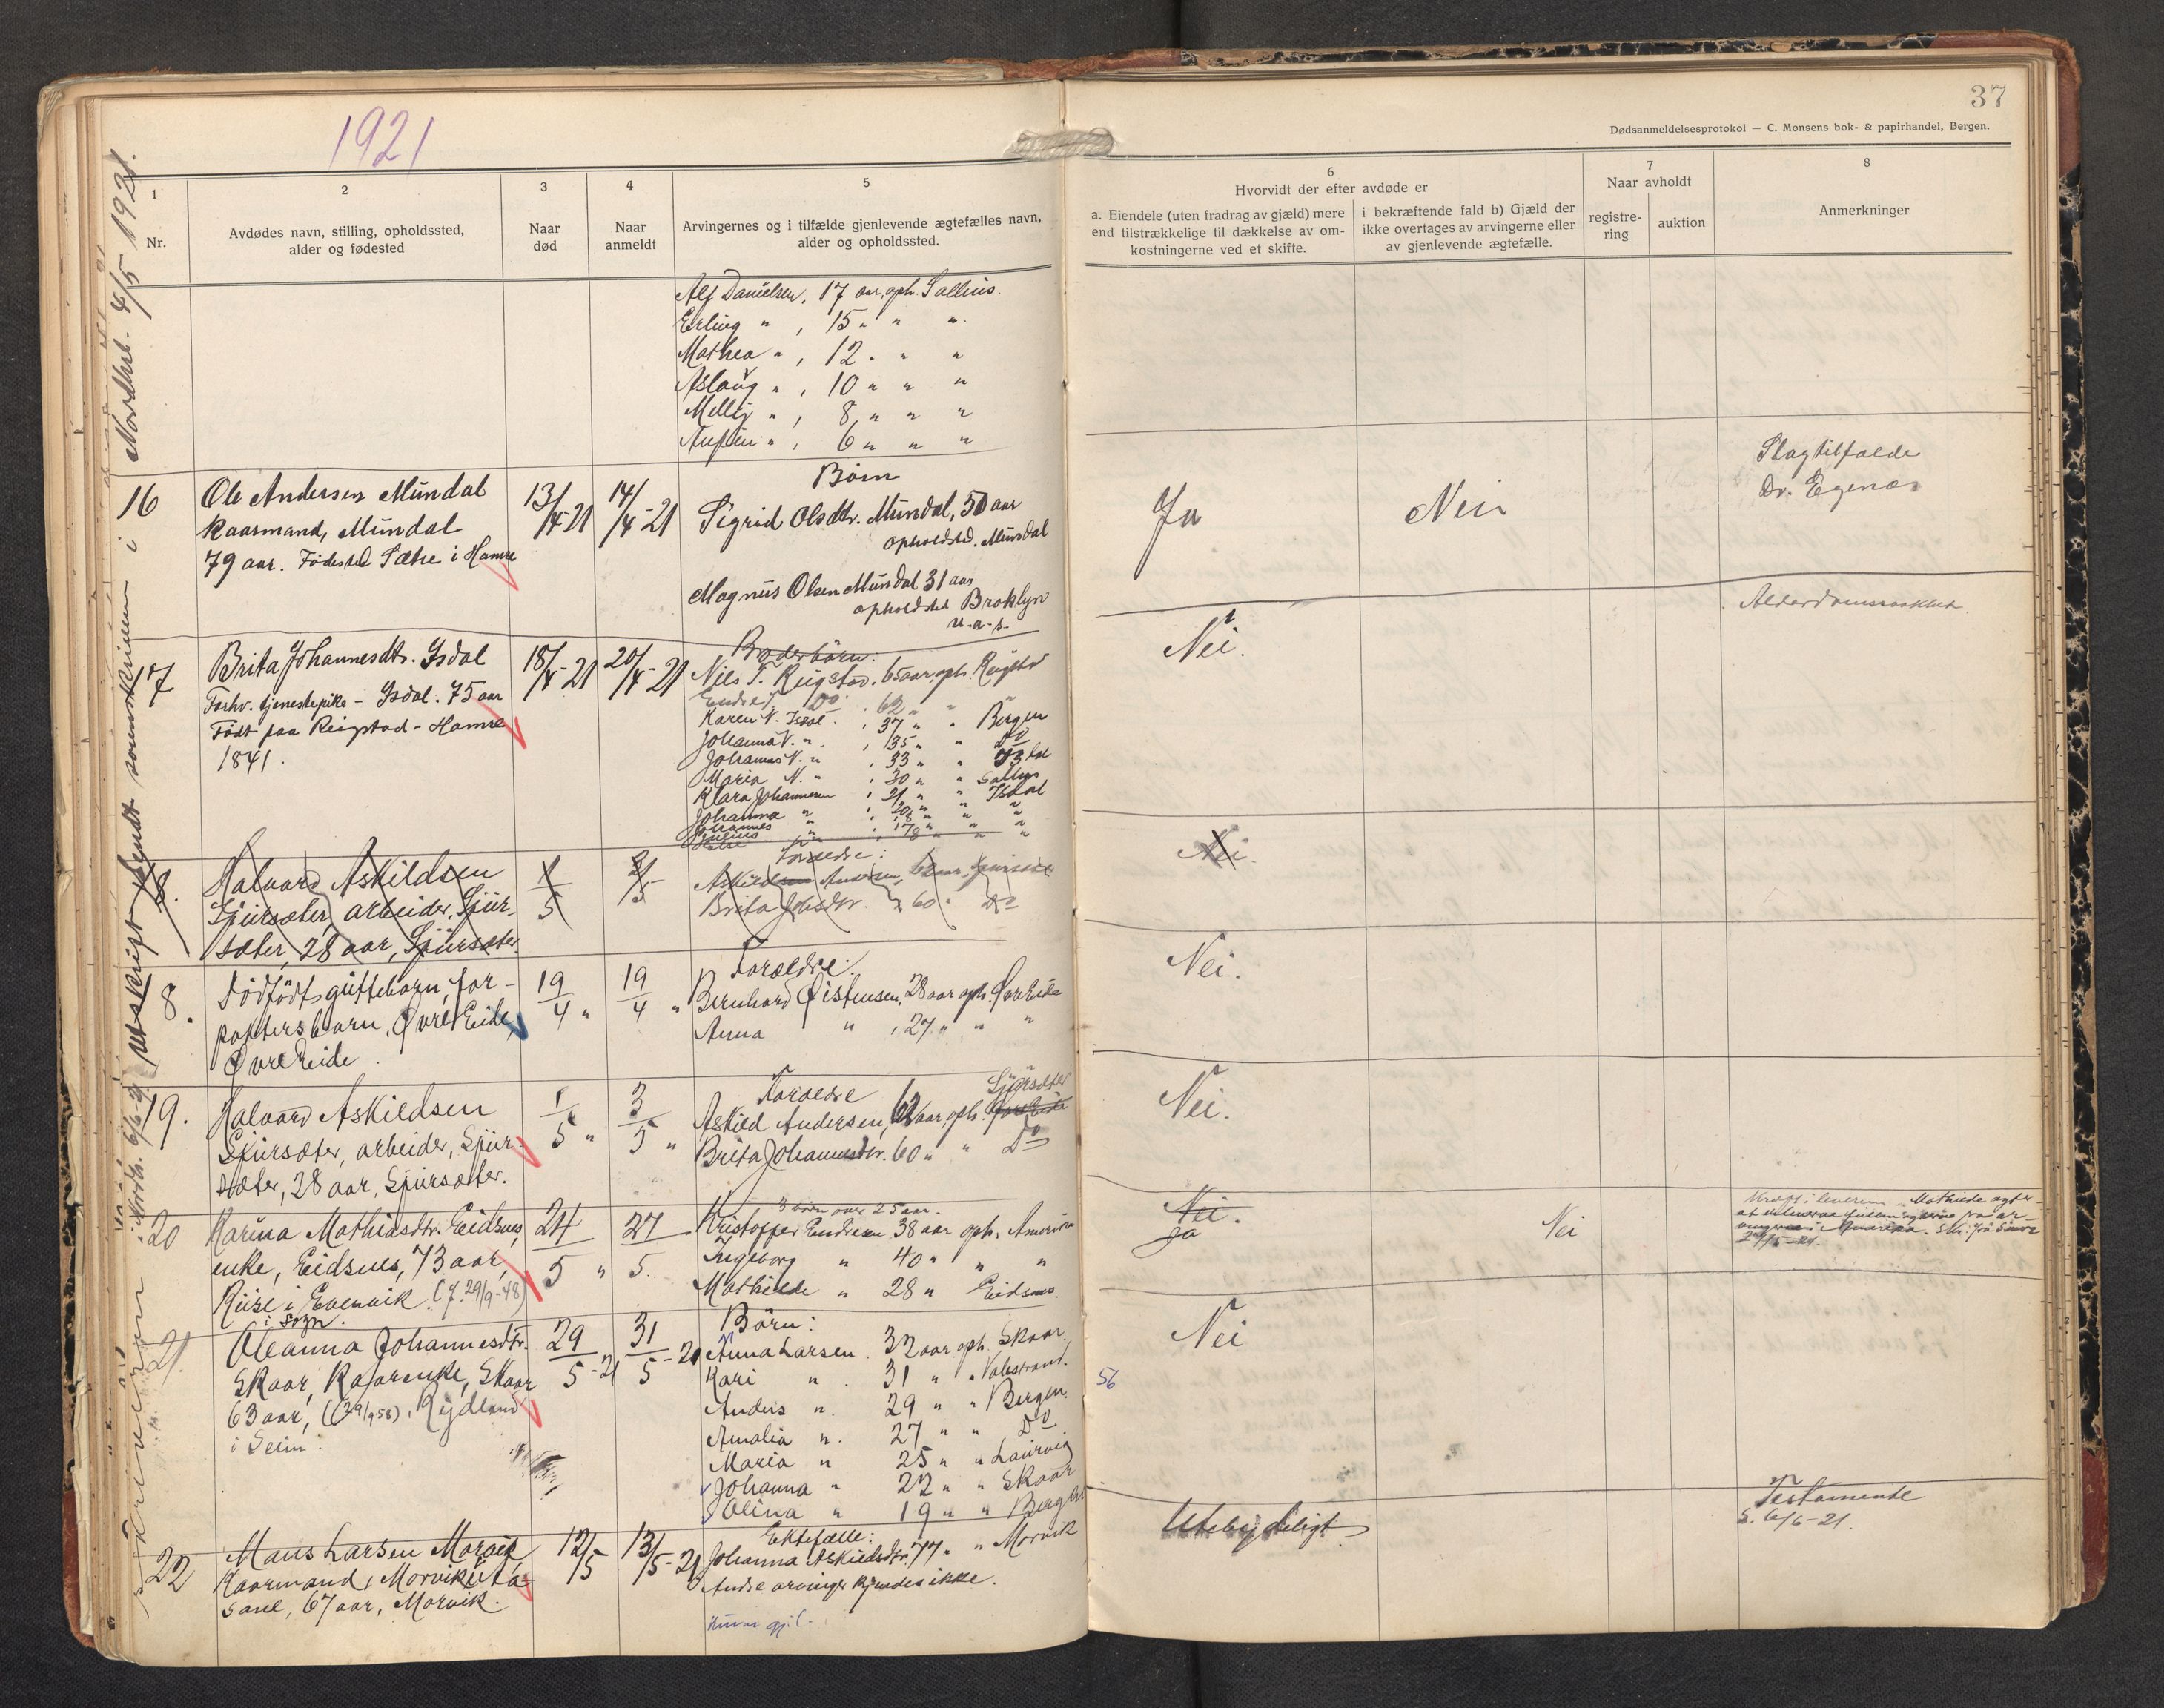 1921
37
Dødsanmeldelsesprotokol — C. Monsens bok- & papirhandel, Bergen.
1
Nr.
2
Avdødes navn, stilling, opholdssted,
alder og fødested
3
Naar
død
4
Naar
anmeldt
5
Arvingernes og i tilfælde gjenlevende ægtefælles navn,
alder og opholdssted.
6
Hvorvidt der efter avdøde er
a. Eiendele (uten fradrag av gjæld) mere
end tilstrækkelige til dækkelse av om-
kostningerne ved et skifte.
i bekræftende fald b) Gjæld der
ikke overtages av arvingerne eller
av gjenlevende ægtefælle.
7
Naar avholdt
registre-
ring
auktion
8
Anmerkninger
Alf Danielsen, 17 aar, oph. Sallhus.
Erling " , 15 " " "
Mathea " , 12 " " "
Aslaug " , 10 " " "
Melly " , 8 " " "
" , 6 " " "
16
Ole Andersen Mundal
Kaarmand, Mundal
79 aar. Fødested Sætre i Hamre
13/4-21
14/4-21
Børn
Sigrid Olsdtr. Mundal, 50 aar
opholdsted. Mundal
Magnus Olsen Mundal 31 aar
opholdsted Broklyn
u.a.s.
Ja
Nei
Slagtilfælde
Dr.
17
Brita Johannesdtr. Isdal
Forhv. tjenestepike - Isdal. 75 aar
Født paa Reigstad - Hamre
1841.
18/4-21
20/4-21
Broderbørn:
Nils T. Reigstad. 65 aar, oph. Reigstad
Endre J. Do . 62 " " "
Karen N. Isdal . 37 " " Bergen
Johanna N. " , 35 " " Do
Johannes N. " , 33 " " Isdal
Maria N. " , 30 " " Salhus
Klara Johannesen , 21 " " Isdal
Johanna " , 20 " " "
Johannes " , 18 " " "
" , 17 " " "
Nei.
Alderdomssvakhet
Halvard Askildsen
Sjursæter, arbeider, Sjur-
sæter, 28 aar, Sjursæter.
1/5
2/5
Foræeldre:
Askildsen Andersen, 62 aar, Sjursæter
Brita Johsdtr. " 60 " Do
Nei.
8.
Dødfødt guttebarn, for-
paktersbarn, Øvre Eide,
Øvre Eide.
19/4 "
19/4 "
Foræeldre:
Bernhard Øistensen, 28 aar oph. Øvre Eide
Anna " , 27 " " "
Nei.
19.
Halvard Askildsen
Sjursæter, arbeider, Sjur-
sæter, 28 aar, Sjursæter.
1/5 "
3/5 "
Foræeldre
Sjursæter
Askild Andersen, 62 aar, oph. Øvre Eide
Brita Johannesdtr. 60 " " Do
Nei.
20
Karina Mathiasdtr. Eidsnes,
enke, Eidsnes, 73 aar,
Riise i Evenvik. (f. 29/9-48)
i Sogn.
24/5 "
27/5.
3 børn over 25 aar.
Kristoffer Endresen 38 aar oph. Amerika
Ingeborg " 40 " " "
Mathilde " 28 " Eidsnes.
Nei.
Ja
Nei
21.
Oleanna Johannesdtr.
Skaar, Kaarenke, Skaar
63 aar, (29/9 58), Rydland
i Seim.
29/5-21
31/5-21
Børn:
Anna Larsen . 32 aar oph. Skaar.
Kari " . 31 " " Valestrand.
Anders " . 29 " " Bergen.
Amalia " . 27 " " Do
Maria " 25 " " Laurvig
Johanna " 22 " " Skaar
Olina " 19 " " Bergen
Nei
56
22
Mons Larsen Morvik
Kaarmand, Morvik i Aa-
sane, 67 aar, Morvik.
12/5
13/5-21
Ektefælle:
Johanna Askildsdtr. 77 " " Morvik
Andre arvinger kjendes ikke.
Ubetydeligt
Testamente
S. 6/6-21.